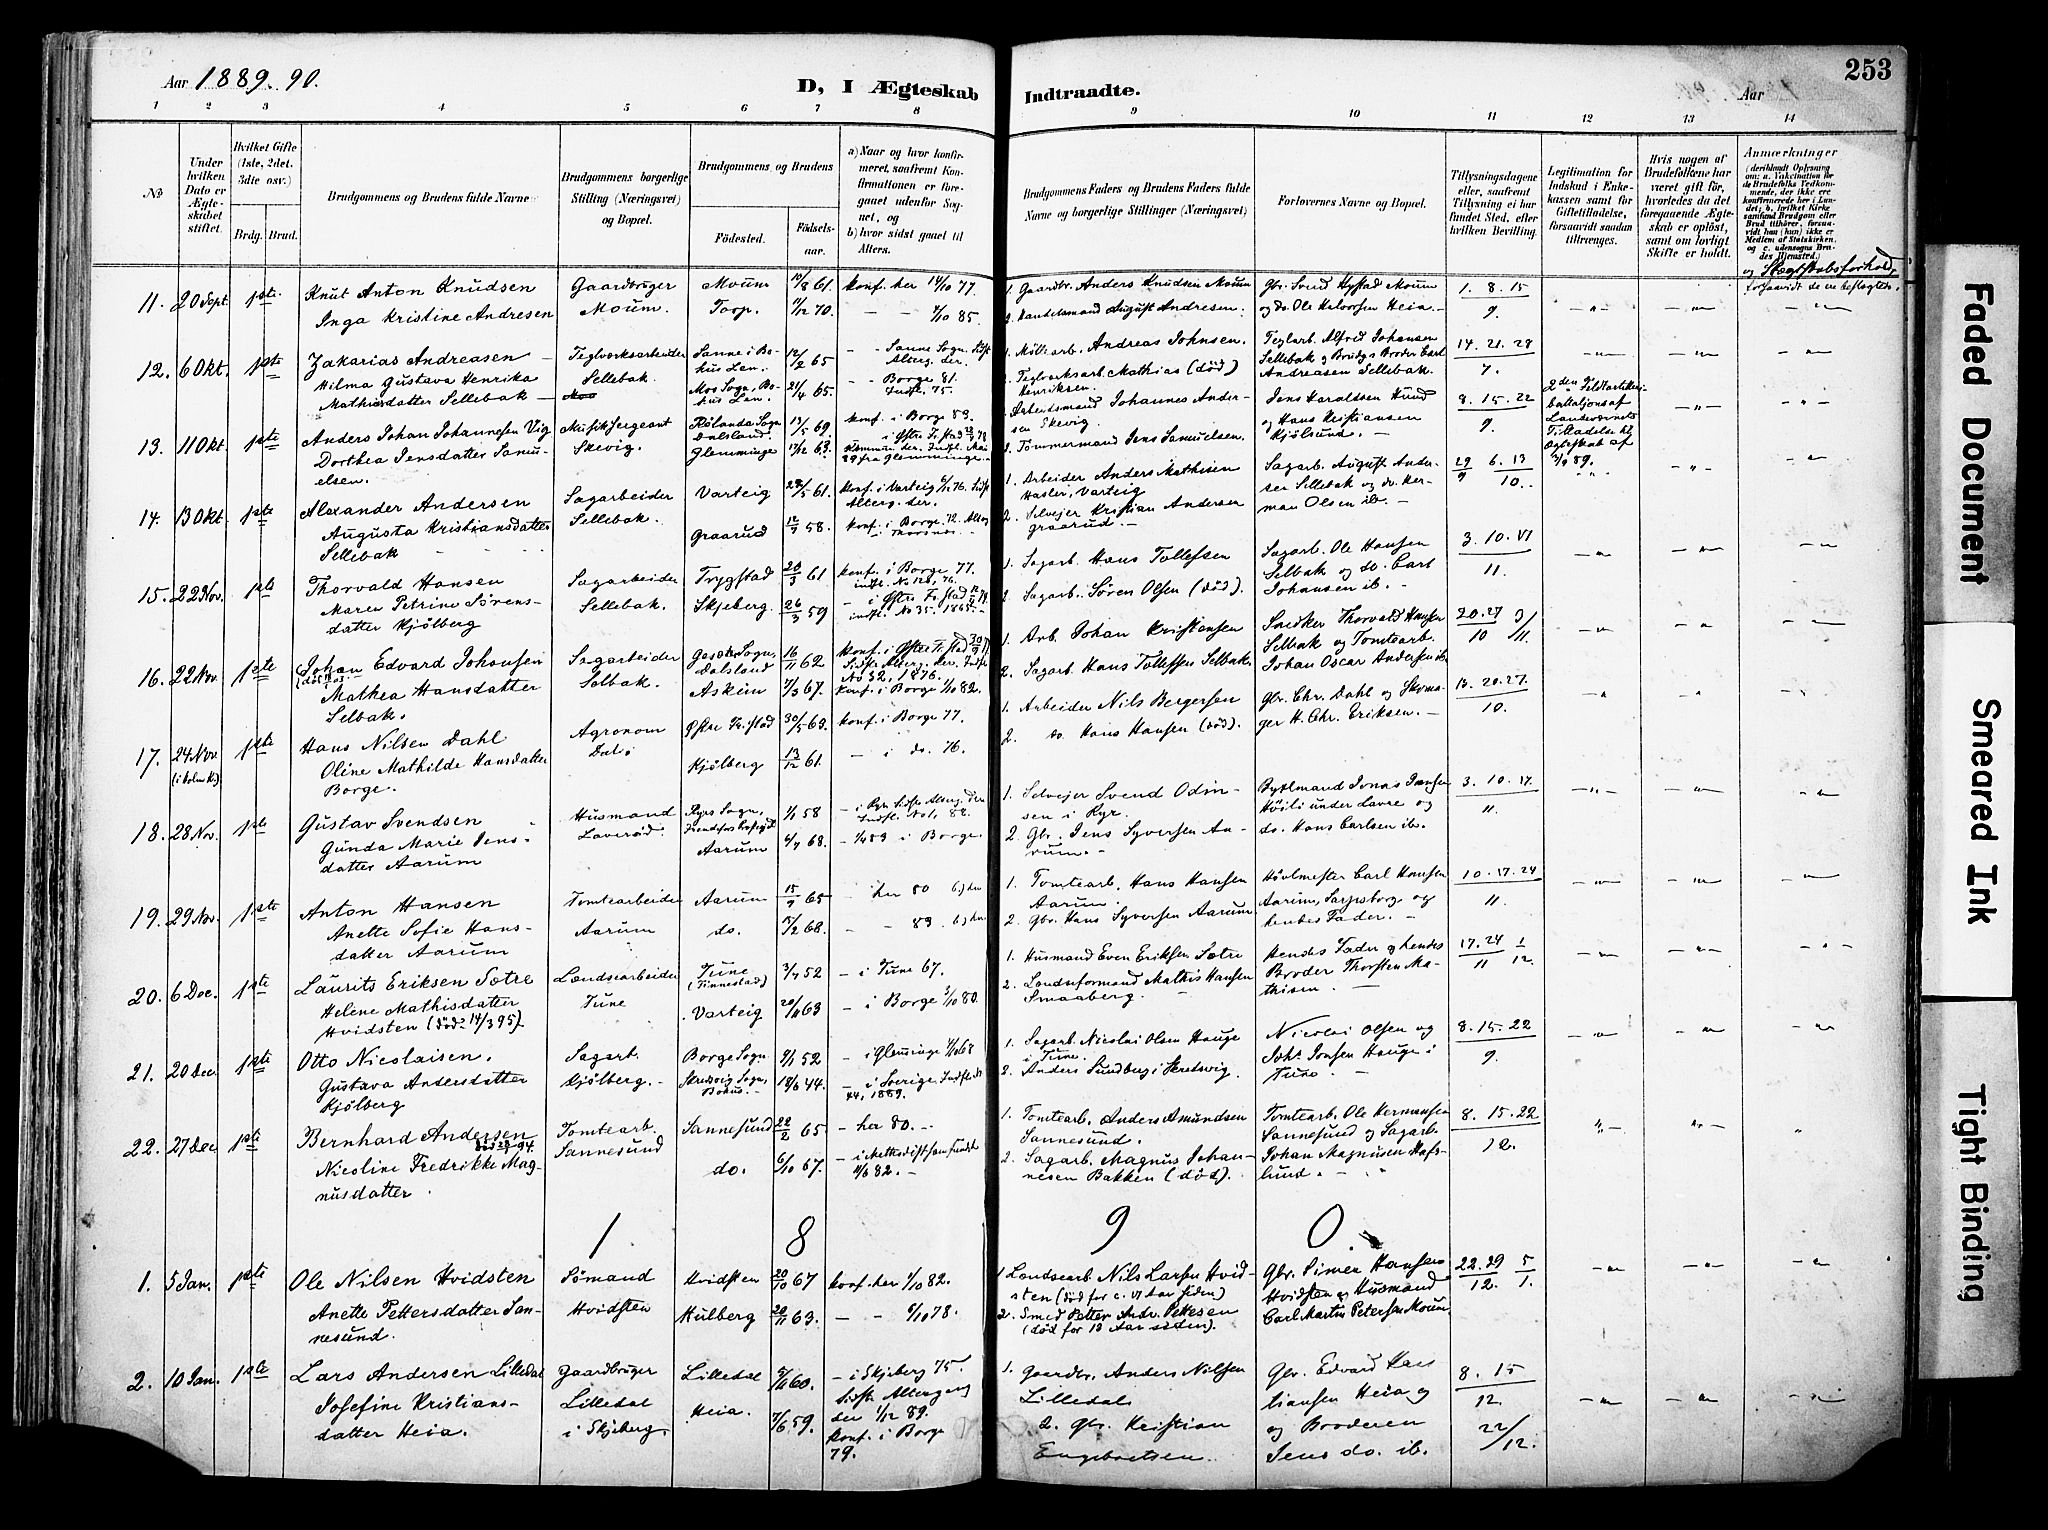 Aar 1889. 90.
D, I Ægteskab Indtraadte.
Aar
253
1 2 3 4 5 6 7 8 9 10 11 12 13 14
No
Under hvilken Dato er Ægteskabet stiftet.
Hvilket Gifte (1ste, 2det, 3die osv.)
Brdg. Brud.
Brudgommens og Brudens fulde Navne
Brudgommens borgerlige Stilling (Næringsvei) og Bopæl.
Brudgommens og Brudens
Fødested.
Fødselsaar.
a) Naar og hvor konfirmeret, saafremt Konfirmationen er foregaaet udenfor Sognet, og
b) hvor sidst gaaet til Alters.
Brudgommens Faders og Brudens Faders fulde Navne og borgerlige Stillinger (Næringsvei)
Forlovernes Navne og Bopæl.
Tillysningsdagene eller, saafremt Tillysning ei har fundet Sted, efter hvilken Bevilling.
Legitimation for Indskud i Enkekassen samt for Giftetilladelse, forsaavidt saadan tiltrænges.
Hvis nogen af Brudefolkene har været gift før, hvorledes da det foregaaende Ægteskab er opløst, samt om lovligt Skifte er holdt.
Anmærkninger
(deriblandt Oplysning om: a. Vakcination for de Brudefolks Vedkommende, der ikke ere konfirmerede her i Landet; b. hvilket Kirkesamfund Brudgom eller Brud tilhører, forsaavidt han (hun) ikke er Medlem af Statskirken, og c. udensogns Brudes Hjemsted.)
og Slægtskabsforhold, forsaavidt de ere beslægtede.
11. 20 Sept. 1ste Knut Anton Knudsen Gaardbruger Moum 10/8 61. Konf. her 14/10 77. 1. Gaardbr. Anders Knudsen Moum Gbr. Svend Hystad Moum 1. 8. 15
Inga Kristine Andresen Moum. Torp. 7/12 70. - - 4/10 85. 2. Handelsmand August Andresen. og do. Ole Halvorsen Heia. 9.
12. 6 Okt. 1ste Zakarias Andreasen Teglværksarbeider Sanne i Bohus Len. 12/2 65 - Sanne Sogn. Sidst Alterg. der. 1. Møllearb. Andreas Johnsen. Teglarb. Alfred Johansen 14. 21. 28
Hilma Gustava Henrika Sellebak. Mos Sogn, Bohus Len. 21/4 65. - Borge 81. Indfl. 75. 2. Teglværksarb. Mathias (død) Henriksen. Sellebak og Brudgs Broder Carl Andreasen Sellebak. 7.
Mathiasdatter Sellebak
13. 11 Okt. 1ste Anders Johan Johannesen Vig Musiksergeant Rölanda Sogn Dalsland. 17/5 69. Konf. i Borge 83. 1. Arbeidsmand Johannes Andersen Skevig. Jens Haraldsen Hund 8. 15. 22 2den Feldtartilleribataljons af Landeværnets Tilladelse til Ægteskab af 3/9 89.
Dorthea Jensdatter Samuelsen. Skevig. Glemminge 17/12 63. i Østre Fr.stad 78 2. Tømmermand Jens Samuelsen. og Hans Kristiansen Kjølsund. 9.
14. 13 Okt. 1ste Alexander Andersen Sagarbeider Varteig 28/5 61. Konf. i Varteig 6/12 76. Sidst Alterg. der. 1. Arbeider Anders Mathisen Hasler, Varteig Sagarb. August Andersen Sellebak og do. Herman Olsen ib. 29/9 6. 13/10.
Augusta Kristiansdatter Sellebak. Graarud 12/9 58. Konf. i Borge 72. 2. Selvejer Kristian Andersen Graarud.
Sellebak
15. 22 Nov. 1ste Thorvald Hansen Sagarbeider Trygstad 20/3 61 Konf. i Borge 77. indfl. No 128, 76. 1. Sagarb. Hans Tollefsen Sagarb. Ole Hansen 3. 10. 17
Maren Petrine Sørensdatter Kjølberg Sellebak. Skjeberg. 26/3 59 - i Østre Fr.stad indfl. No 35. 1865. 2. Sagarb. Søren Olsen (død). Selbak og do. Carl Johansen ib. 11.
16. 22 Nov. 1ste Johan Edvard Johansen Sagarbeider Dalsland 16/11 62 Konf. i Østre Fr.stad Sidst Alterg. der. Indfl. No 32, 1876. 1. Arb. Johan Kristensen Snedker Thorvald Hansen 20. 27/10 3/11.
Mathea Hansdatter Selbak. Selbak. Askim 7/3 67. Konf. i Borge 1/10 82. 2. Sagarb. Hans Tollefsen Selbak. Selbak og Tomtearb. Johan Oscar Andersen ib.
17. 24 Nov. (i Holm K.) 1ste Hans Nilsen Dahl Agronom Østre Fr.stad 30/5 63. Konf. i Borge 77. 1. Arbeider Nils Bergersen Gbr. Chr. Dahl og Skomager H. Chr. Eriksen. 13. 20. 27.
Oline Mathilde Hansdatter Borge. Dal. Kjølberg 13/12 61. - i do. 76. 2. do Hans Hansen (død). 10.
18. 28 Nov. 1ste Gustav Svendsen Husmand Ryrs Sogn, 1/1 58 - i Ryr. Sidst Alterg. der 1. Selvejer Svend Odinsen i Ryr. Bygselmand Jonas Jansen 3. 10. 17.
Gunda Marie Jensdatter Aarum Laverød. Aarum 6/7 68. - 1/4 83 i Borge. 2. Gbr. Jens Syversen Aarum. Høili under Lavre og do. Hans Carlsen ib. 11.
19. 29 Nov. 1ste Anton Hansen Tomtearbeider Aarum 15/9 65 - her 80 1. Tomtearb. Hans Hansen Aarum. Høvlmester Carl Hansen 10. 17. 24
Anette Sofie Hansdatter Aarum Aarum do. 5/2 68. - - 83. 2. Gbr. Hans Syversen Aarum Aarum, Sarpsborg og hendes Fader. 11.
20. 6 Dec. 1ste Laurits Eriksen Sætre Landsearbeider Tune (Tinnestad) 3/7 52 - i Tune 67. 1. Husmand Even Eriksen Sætre Hendes Fader og hendes 17. 24/11 1/12.
Helene Mathisdatter Hvidsten (død 14/3 95) Tune Varteig 20/11 63 - i Borge 3/10 80. 2. Landseformand Mathis Hansen Smaaberg. Broder Thorsten Mathisen.
21. 20 Dec 1ste Otto Nicolaisen. Sagarb. Borge Sogn. 9/1 52 - i Glemminge 4/10 68 1. Sagarb. Nicolai Olsen Hauge i Tune. Nicolai Olsen og 8. 15. 22
Gustava Andersdatter Kjølberg Kjølberg. Skredsvig Sogn, Bohus. 18/6 44. - i Sverige, Indfl. 44, 1889. 2. Anders Sundberg i Skretsvig. Joh. Jonsen Hauge i Tune 9.
22. 27 Dec 1ste Bernhard Andersen Tomtearb. Sannesund 22/2 65 - her 80. 1. Tomtearb. Anders Amundsen Sannesund. Tomtearb. Ole Hermansen 8. 15. 22
Nicoline Fredrikke Magnusdatter. Sannesund do. 6/10 67. - i Methodistsamfundet 4/6 82. 2. Sagarb. Magnus Johannesen Bakken (død). Sannesund og Sagarb. Johan Magnusen Hafslund. 12.
1 8 9 0.
1. 5 Jan. 1ste Ole Nilsen Hvidsten Sømand Hvidsten 20/10 67 Konf. her 1/10 82. 1 Landsearb. Nils Larsen Hvidsten (død for c. 17 Aar siden) Gbr. Simen Hansen 22. 29/12. 5/1.
Anette Pettersdatter Sannesund. Hvidsten Hulberg 20/11 63. - - 6/10 78. 2. Smed Petter Andr. Pettesen (død for 13 Aar siden). Hvidsten og Husmand Carl Martin Petersen Moum
2. 10 Jan. 1ste Lars Andersen Lilledal Gaardbruger Lilledal 5/11 60. - i Skjeberg 75. Sidst Altergang der 1/12 89. 1. Gaardbr. Anders Nilsen Lilledal Gbr. Edvard Hansen Heia og 8. 15/12
Josefine Kristiansdatter Heia. Lilledal i Skjeberg. Heia. 7/6 59. Konf. i Borge 79. 2. Gbr. Kristian Engebretsen. og Broderen Jens do. ib. 22/12.
Faded Document
Smeared Ink
Tight Binding